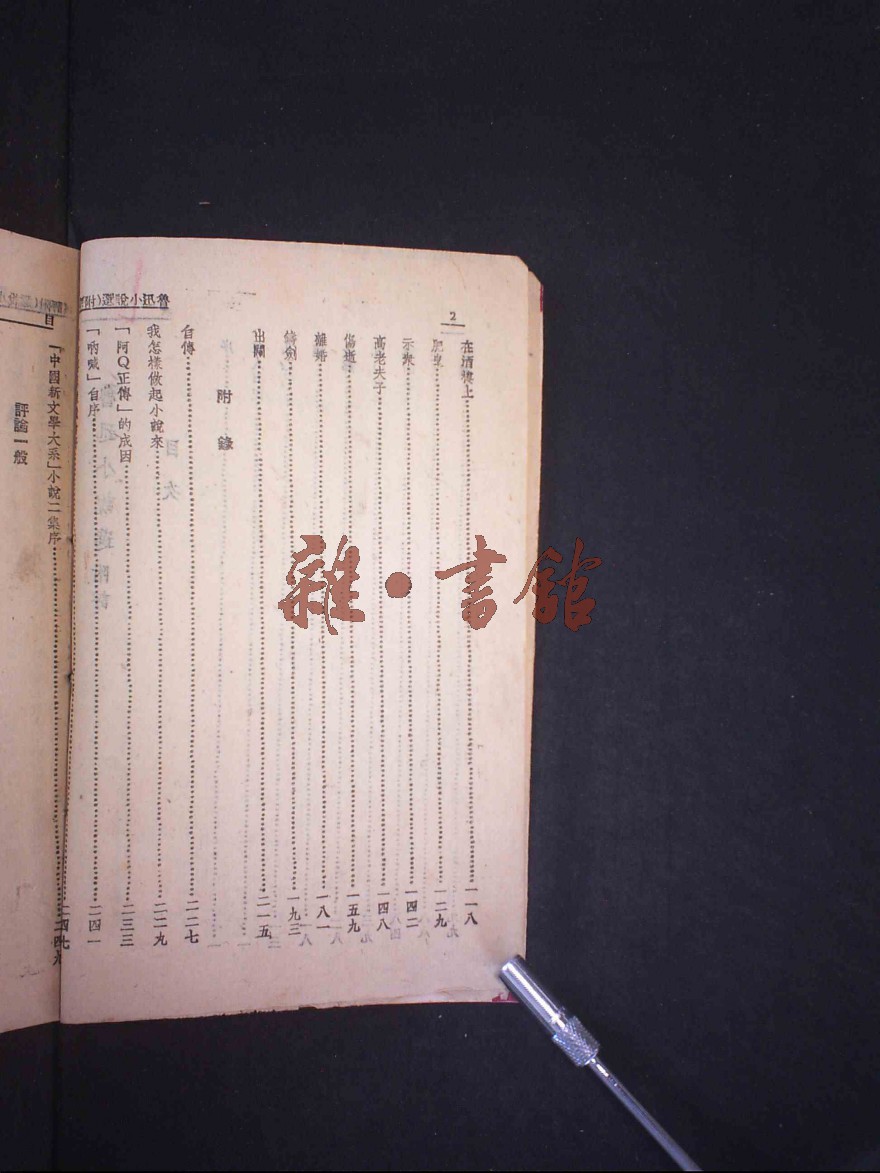 魯迅小說選（附
2
在酒樓上……一一八
肥皂……一二九
示衆……一四二
高老夫子……一四八
傷逝……一五九
離婚……一八一
鑄劍……一九三
出關……二一五
附錄
自傳……二二七
我怎樣做起小說來……二二九
「阿Q正傳」的成因……二三三
「吶喊」自序……二四一
二四七
目
「中國新文學大系」小說二集序……二四九
評論一般
雜·書館